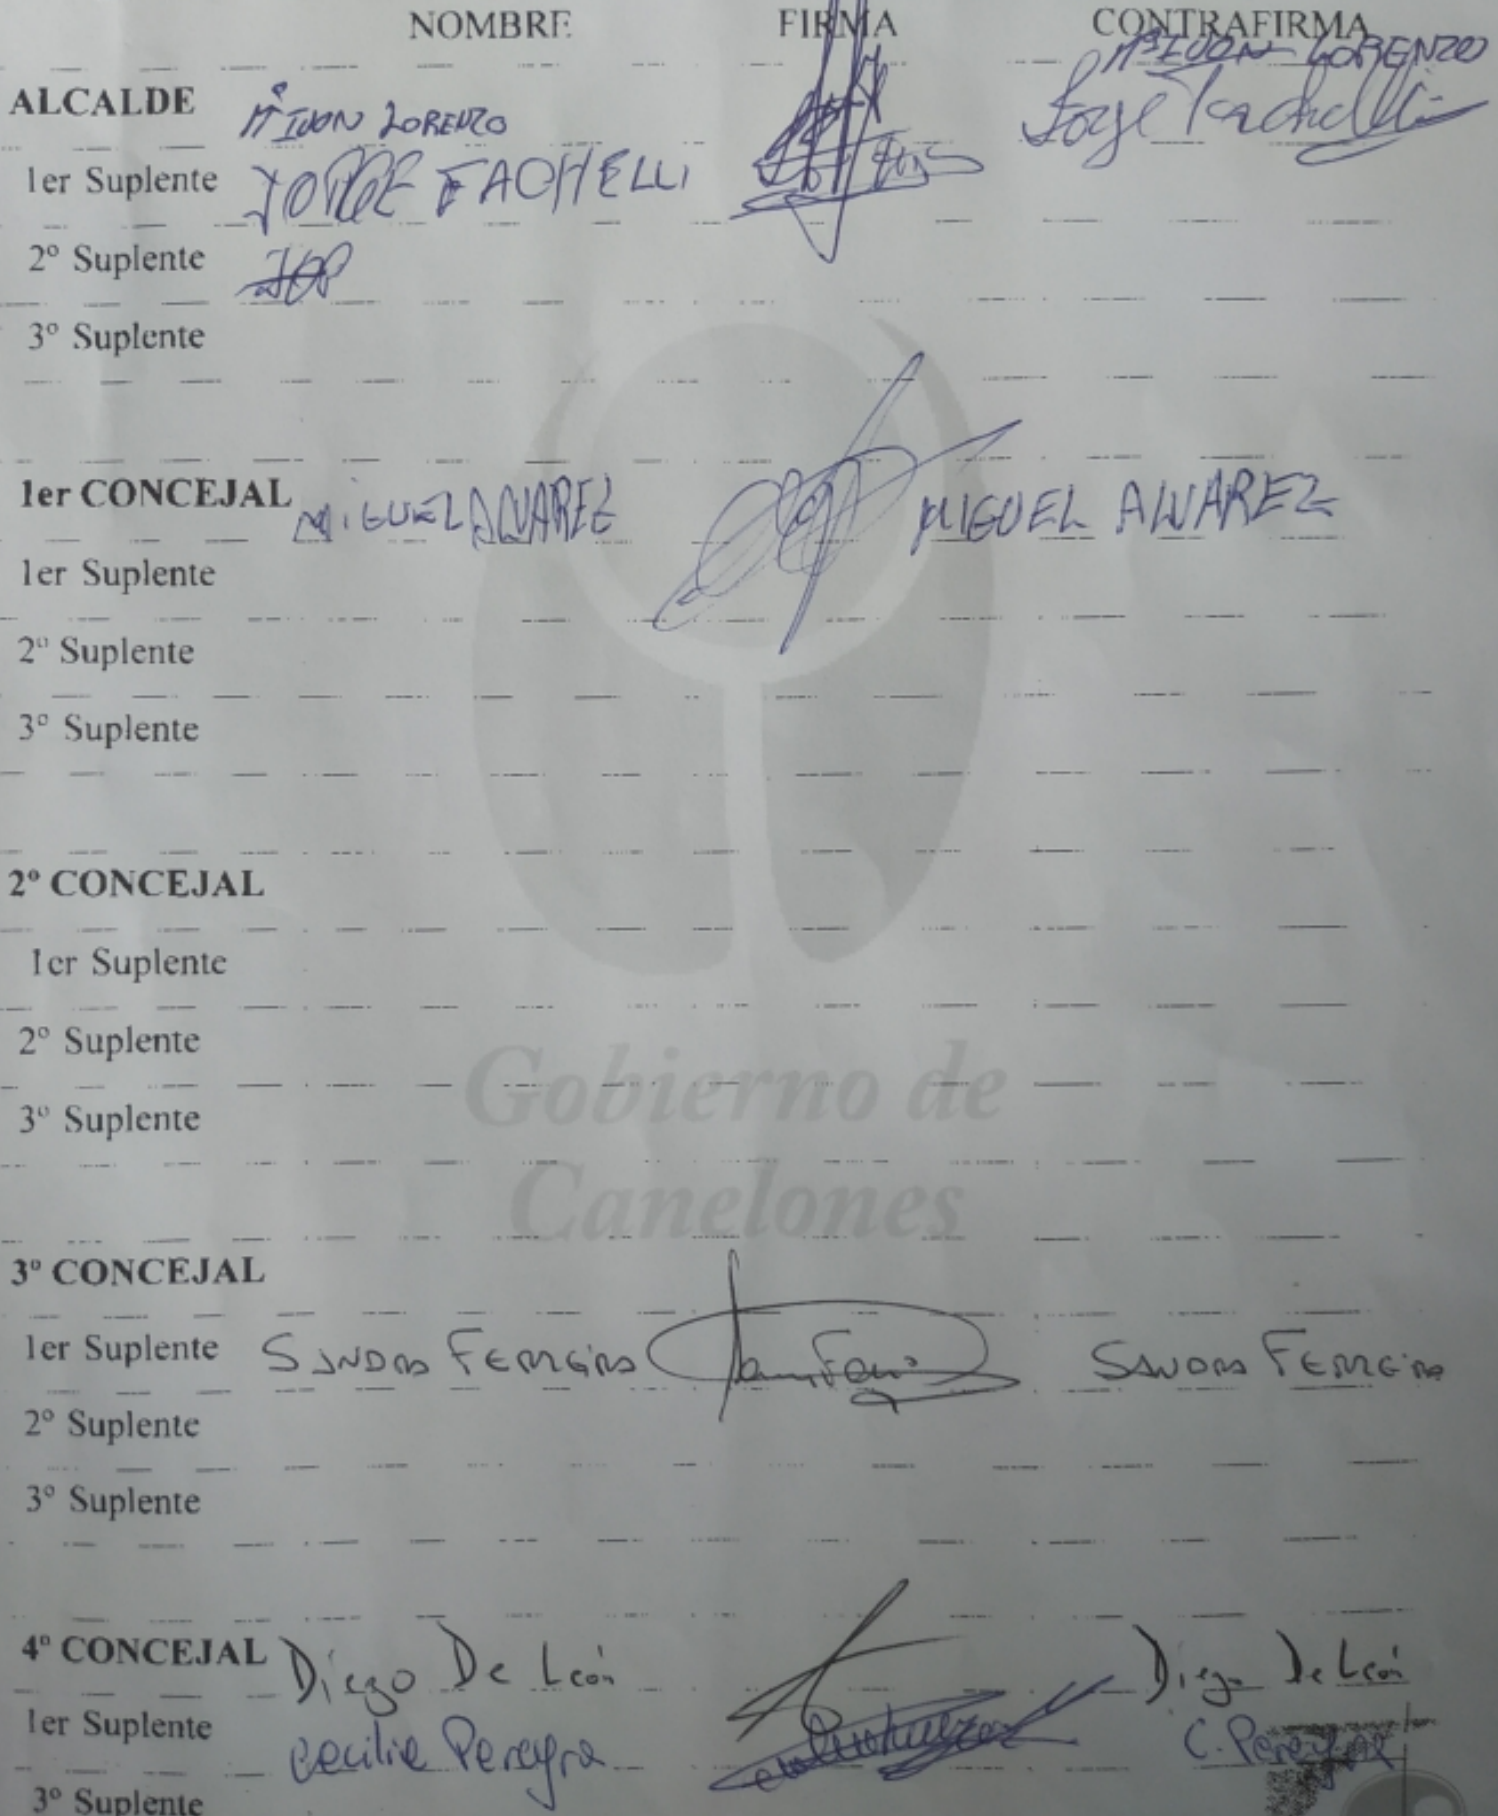 NOMBRE FIRMA CONTRAFIRMA
ALCALDE Mª IVON LORENZO Mª IVON LORENZO
1er Suplente JORGE FACHELLI Jorge Fachelli
2º Suplente
3º Suplente
1er CONCEJAL MIGUEL ALVAREZ MIGUEL ALVAREZ
1er Suplente
2º Suplente
3º Suplente
2º CONCEJAL
1er Suplente
2º Suplente
3º Suplente
Gobierno de
Canelones
3º CONCEJAL
1er Suplente SANDRA FERREIRA SANDRA FERREIRA
2º Suplente
3º Suplente
4º CONCEJAL Diego De León Diego De León
1er Suplente Cecilia Pereyra C. Pereyra
3º Suplente